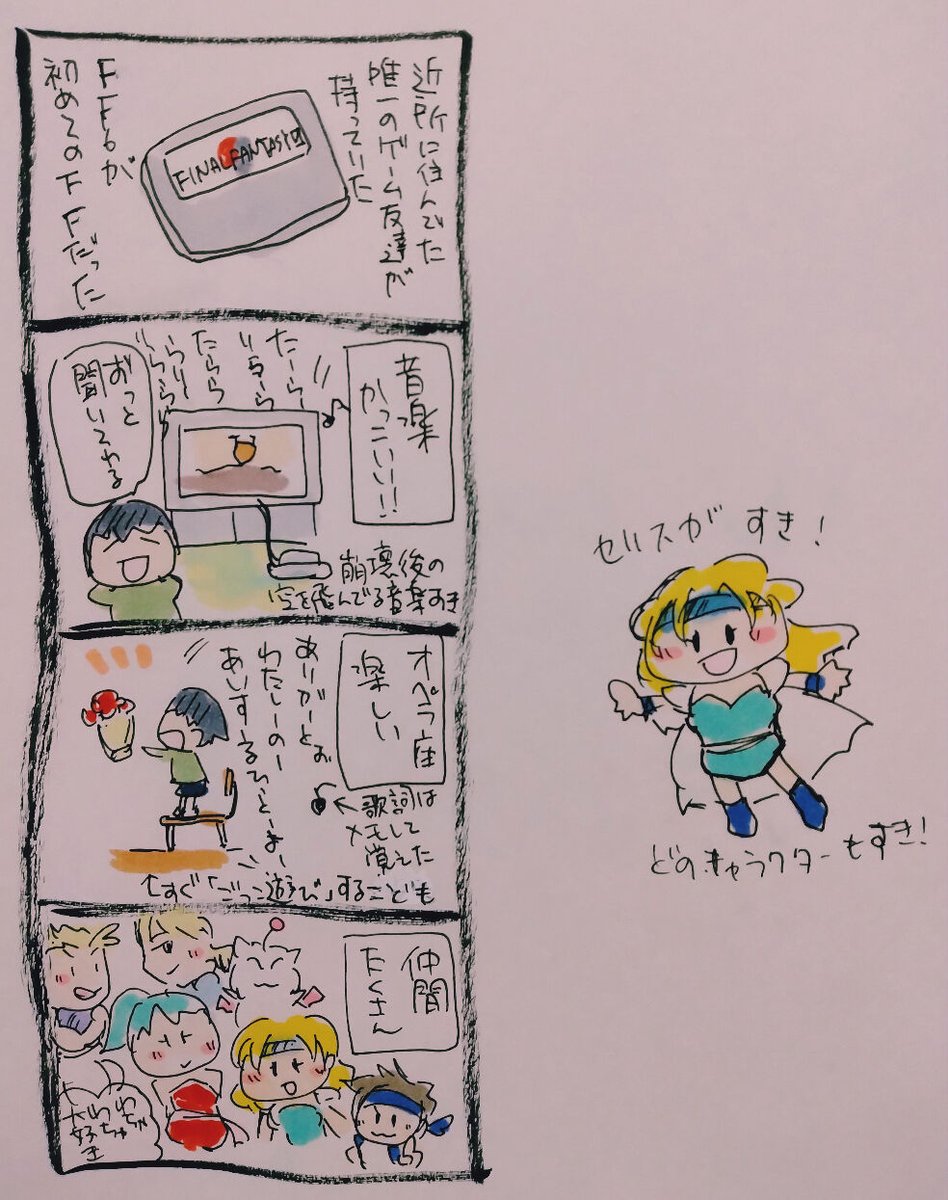 近所に住んでた
唯一のゲーム友達が
持っていた
FINAL FANTASY VI
FF6が
初めてのFFだった
音楽
かっこいい!!
たーらー
らららら
らりー
ずっと
聞いてれる
崩壊後の
空を飛んでる音楽すき
オペラ座
楽しい
ありがーとお
わたしーの
あいするひーとよー
←歌詞は
メモして
覚えた
↑すぐ「ごっこ遊び」するこども
仲間
たくさん
わちゃ
わちゃ
大好き
セリスが すき!
どのキャラクターもすき!